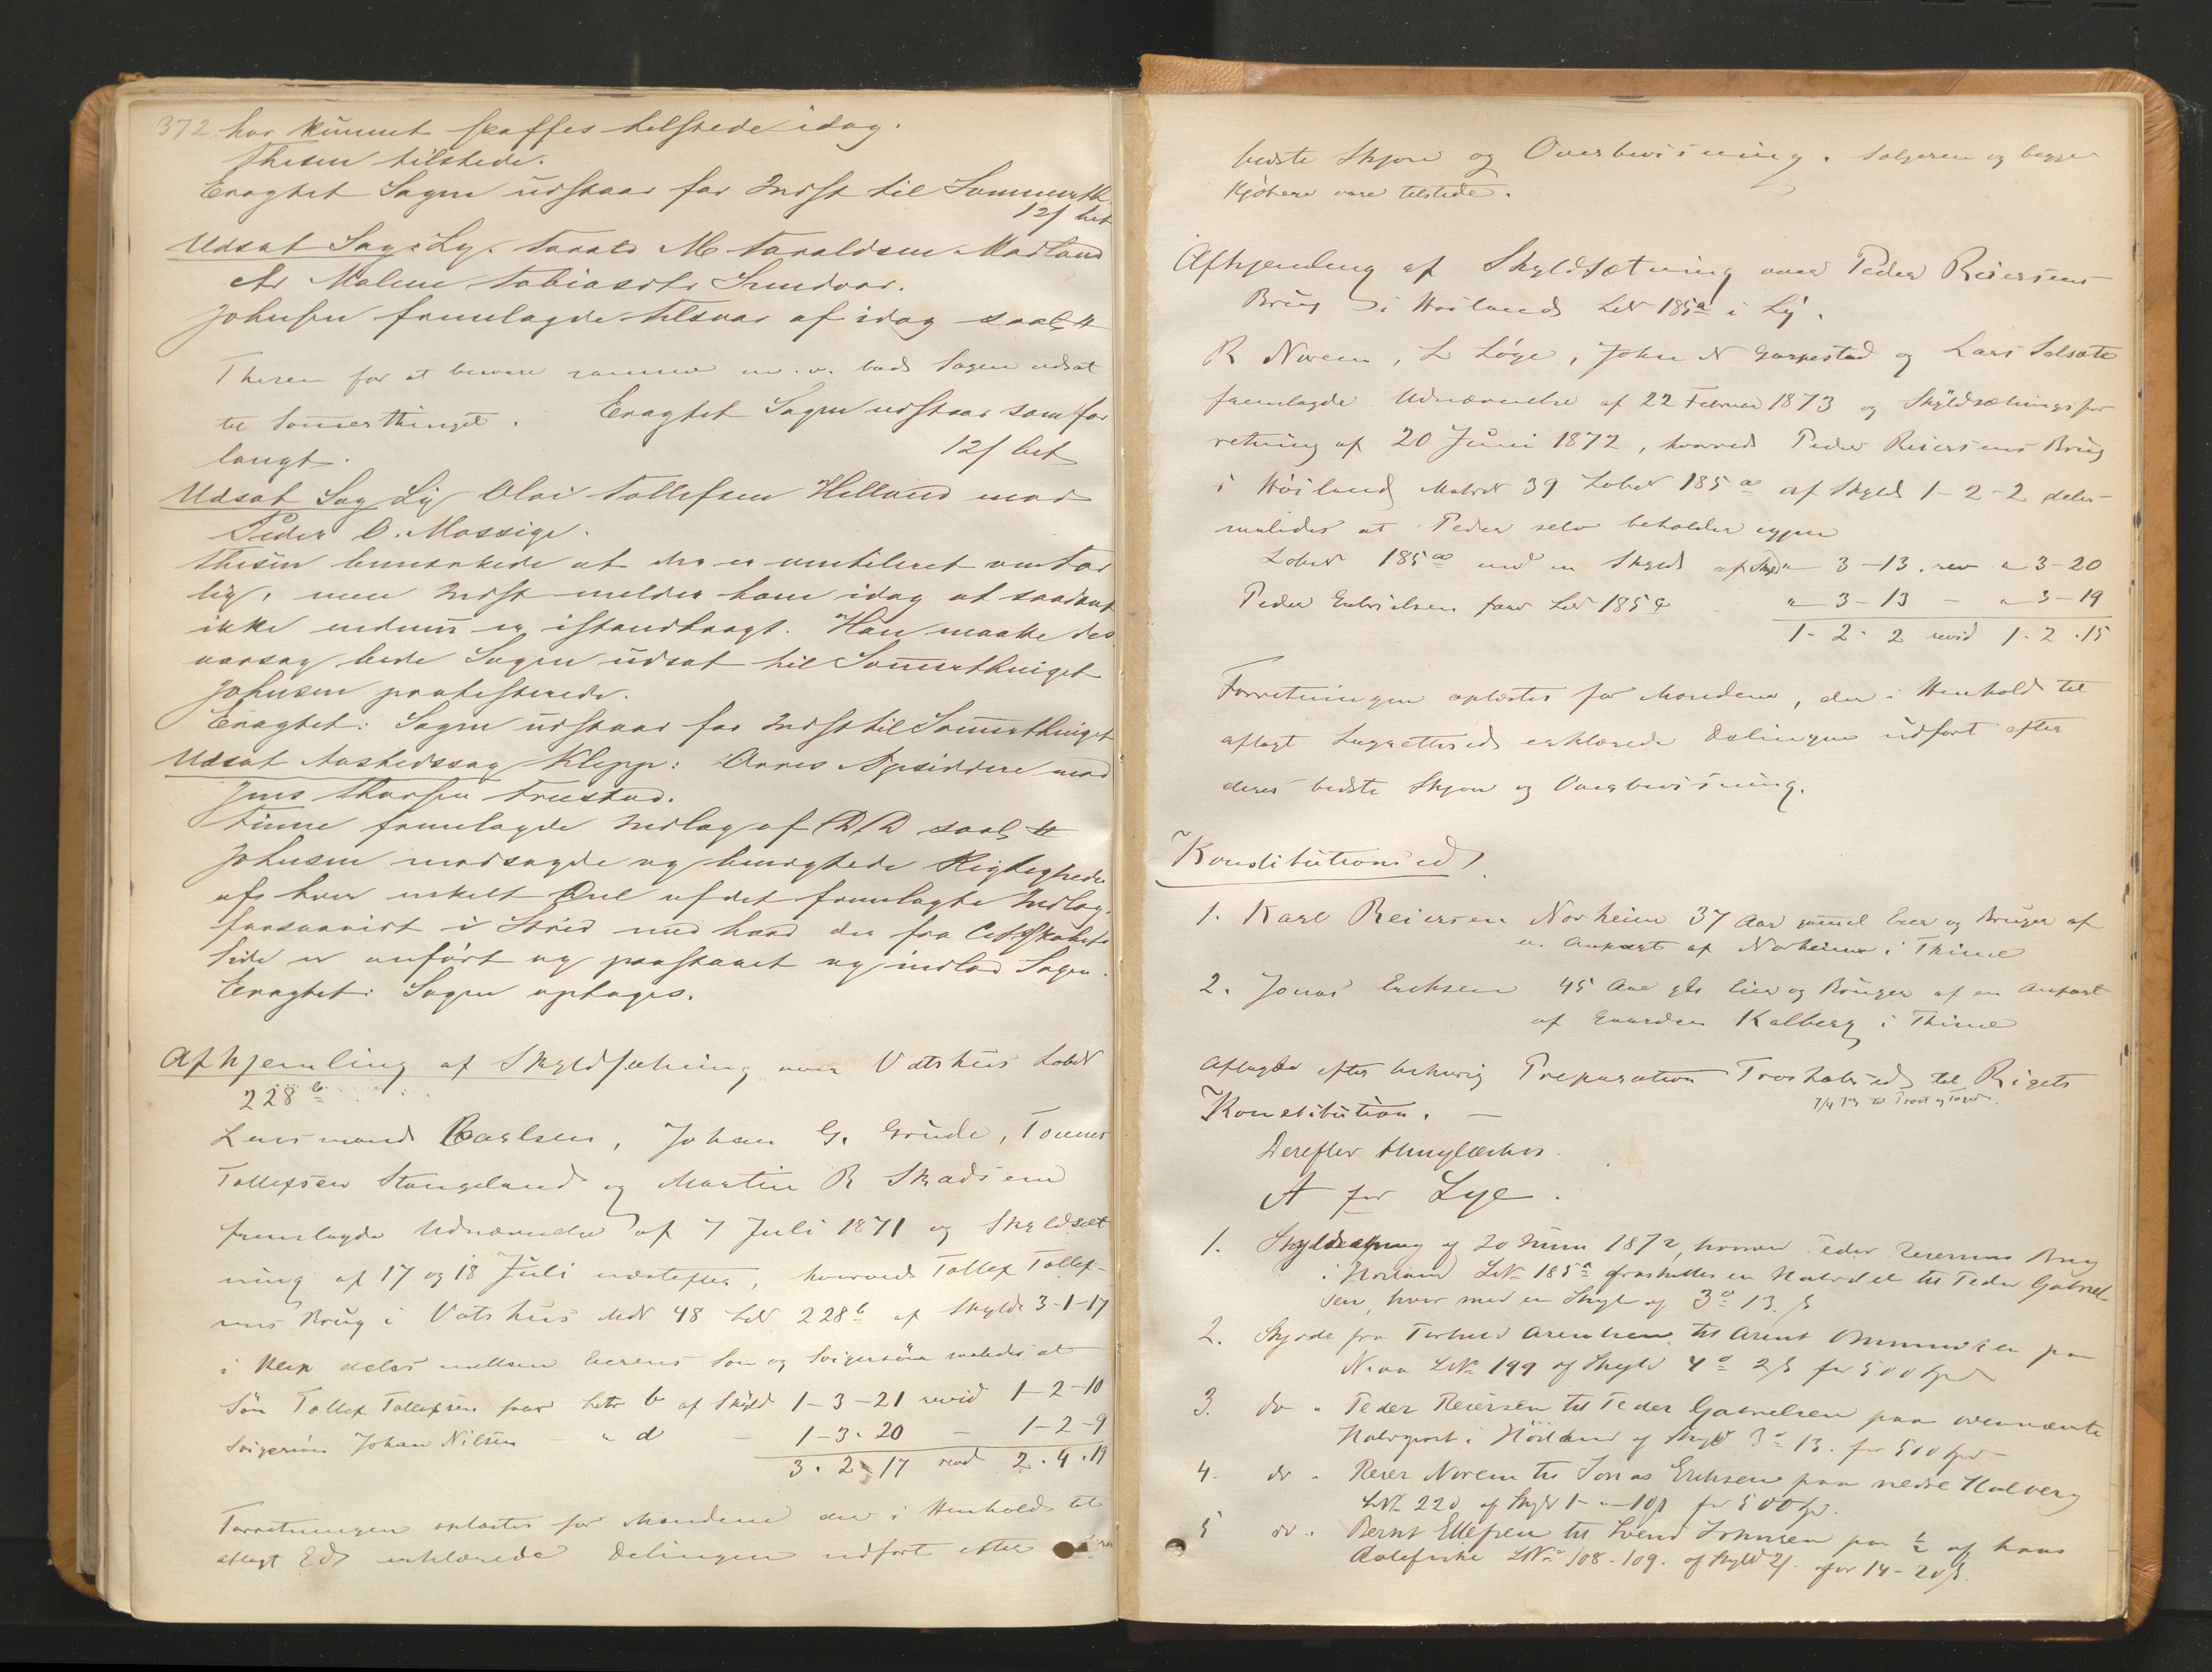 372 har kunnet skaffes tilstede idag.
Thesen tilstede.
Eragtet Sagen udstaar for Indst til Sommerth
12/ bet
Udsat Sag: Ly. Tarald M Taraldsen Madland
Malene Tobiasdtr
Johnsen fremlagde tilsvar af idag saal #
Thesen for at bevare samme m. v. bad Sagen udsat
til Sommerthinget. Eragtet Sagen udstaar som for
langt. 12/ bet
Udsat Sag Ly Olai Tollefsen Helland mod
Peder O. Mossige.
Thesen bemærkede at der er ventileret om for
lig, men Indst melder ham idag at saadant
ikke endnu er istandbragt. Han maatte des
aarsag bede Sagen udsat til Sommerthinget
Johnsen protesterede.
Eragtet: Sagen udstaar for Indst til Sommerthinget
Udsat Klepp: mod
Jens Thorsen
Tinne fremlagde Indlæg af D D saal #
Johnsen modsagde og benegtede Rigtigheden
af hver enkelt Deel af det fremlagte Indlæg
forsaavidt i Strid med hvad der fra
Side er anført og paastaaet og indlod Sagen.
Eragtet: Sagen optages.
Afhjemling af Skyldsætning over Vatshus Lobn
228 b
Lensmand Carlsen, Johan G. Grude, Tønnes
Tollefsen Stangeland og Martin R Skadsem
fremlagde Udnævnelse af 7 Juli 1871 og Skyldsæt
ning af 17 og 18 Juli næstefter, hvorved Tollef Tollef-
sens Brug i Vatshus MN 48 LN 228 b af Skyld 3-1-17
i Klep deles mellem Eierens Søn og Svigersøn saaledes at
Søn Tollef Tollefsen faar Litr b af Skyld 1-3-21 revid 1-2-10
Svigersøn Johan Nilsen - " d - 1-3-20 - 1-2-9
3. 2. 17 revid 2. 4. 19
Forretningen oplæstes for Mændene der i Henhold til
aflagt Ed erklærede Delingen udført efter
bedste Skjøn og Overbevisning. Sælgeren og begge
Kjøbere vare tilstede.
Afhjemling af Skyldsætning over Peder Reiersens
Brug i Høiland LN 185 a i Ly.
R Norem, L Löge, John N Garpestad og Lars
fremlagde Udnævnelse af 22 Februar 1873 og Skyldsætningsfor
retning af 20 Juni 1872, hvorved Peder Reiersens Brug
i Höiland Matr N 39 Lobn 185 a af Skyld 1-2-2 deles
saaledes at Peder selv beholder
Lobn 185 a med en Skyld af " 3-13. rev " 3-20
Peder Gabrielsen faar LN 185 " 3-13 - " 3-19
1- 2- 2 revid 1. 2. 15
Forretningen oplæstes for Mændene, der i Henhold til
aflagt Lagretteed erklærede Delingen udført efter
deres bedste Skjøn og Overbevisning.
Konstitutionsed
1. Karl Reiersen Norheim 37 Aar gammel Eier og Bruger af
en Anpart af Norheim i Thime
2. Jonas Eriksen 45 Aar gl Eier og Bruger af en Anpart
af Gaarden Kalberg i Thime
Aflagde efter behørig Preparation Troskabsed til Rigets
Konstitution. -
Derefter thinglæstes.
A for Lye.
1. Skyldsætning af 20 Juni 1872, hvorved Peder Reiersens Brug
i Høiland LN 185 a fraskilles en Halvdel til Peder Gabriel-
sen, hver med en Skyld af 3 o 13 ß
2. Skjøde fra Arentsen til Arent paa
LN 199 af Skyld 4 o 2 ß for 500 Spd
3. do " Peder Reiersen til Peder Gabrielsen paa ovennævnte
Halvpart i Höiland af Skyld 3 o 13. for 500 Spd
4. do " Reier Norem til Jonas Eriksen paa nedre Kalberg
LN 220 af Skyld 1-"-10ß for 500 Spd.
5 do " Bernt Ellefsen til Svend Johnsen paa ½ af hans
Aalefiske LN 108-109. af Skyld 2/. for 14-20ß.